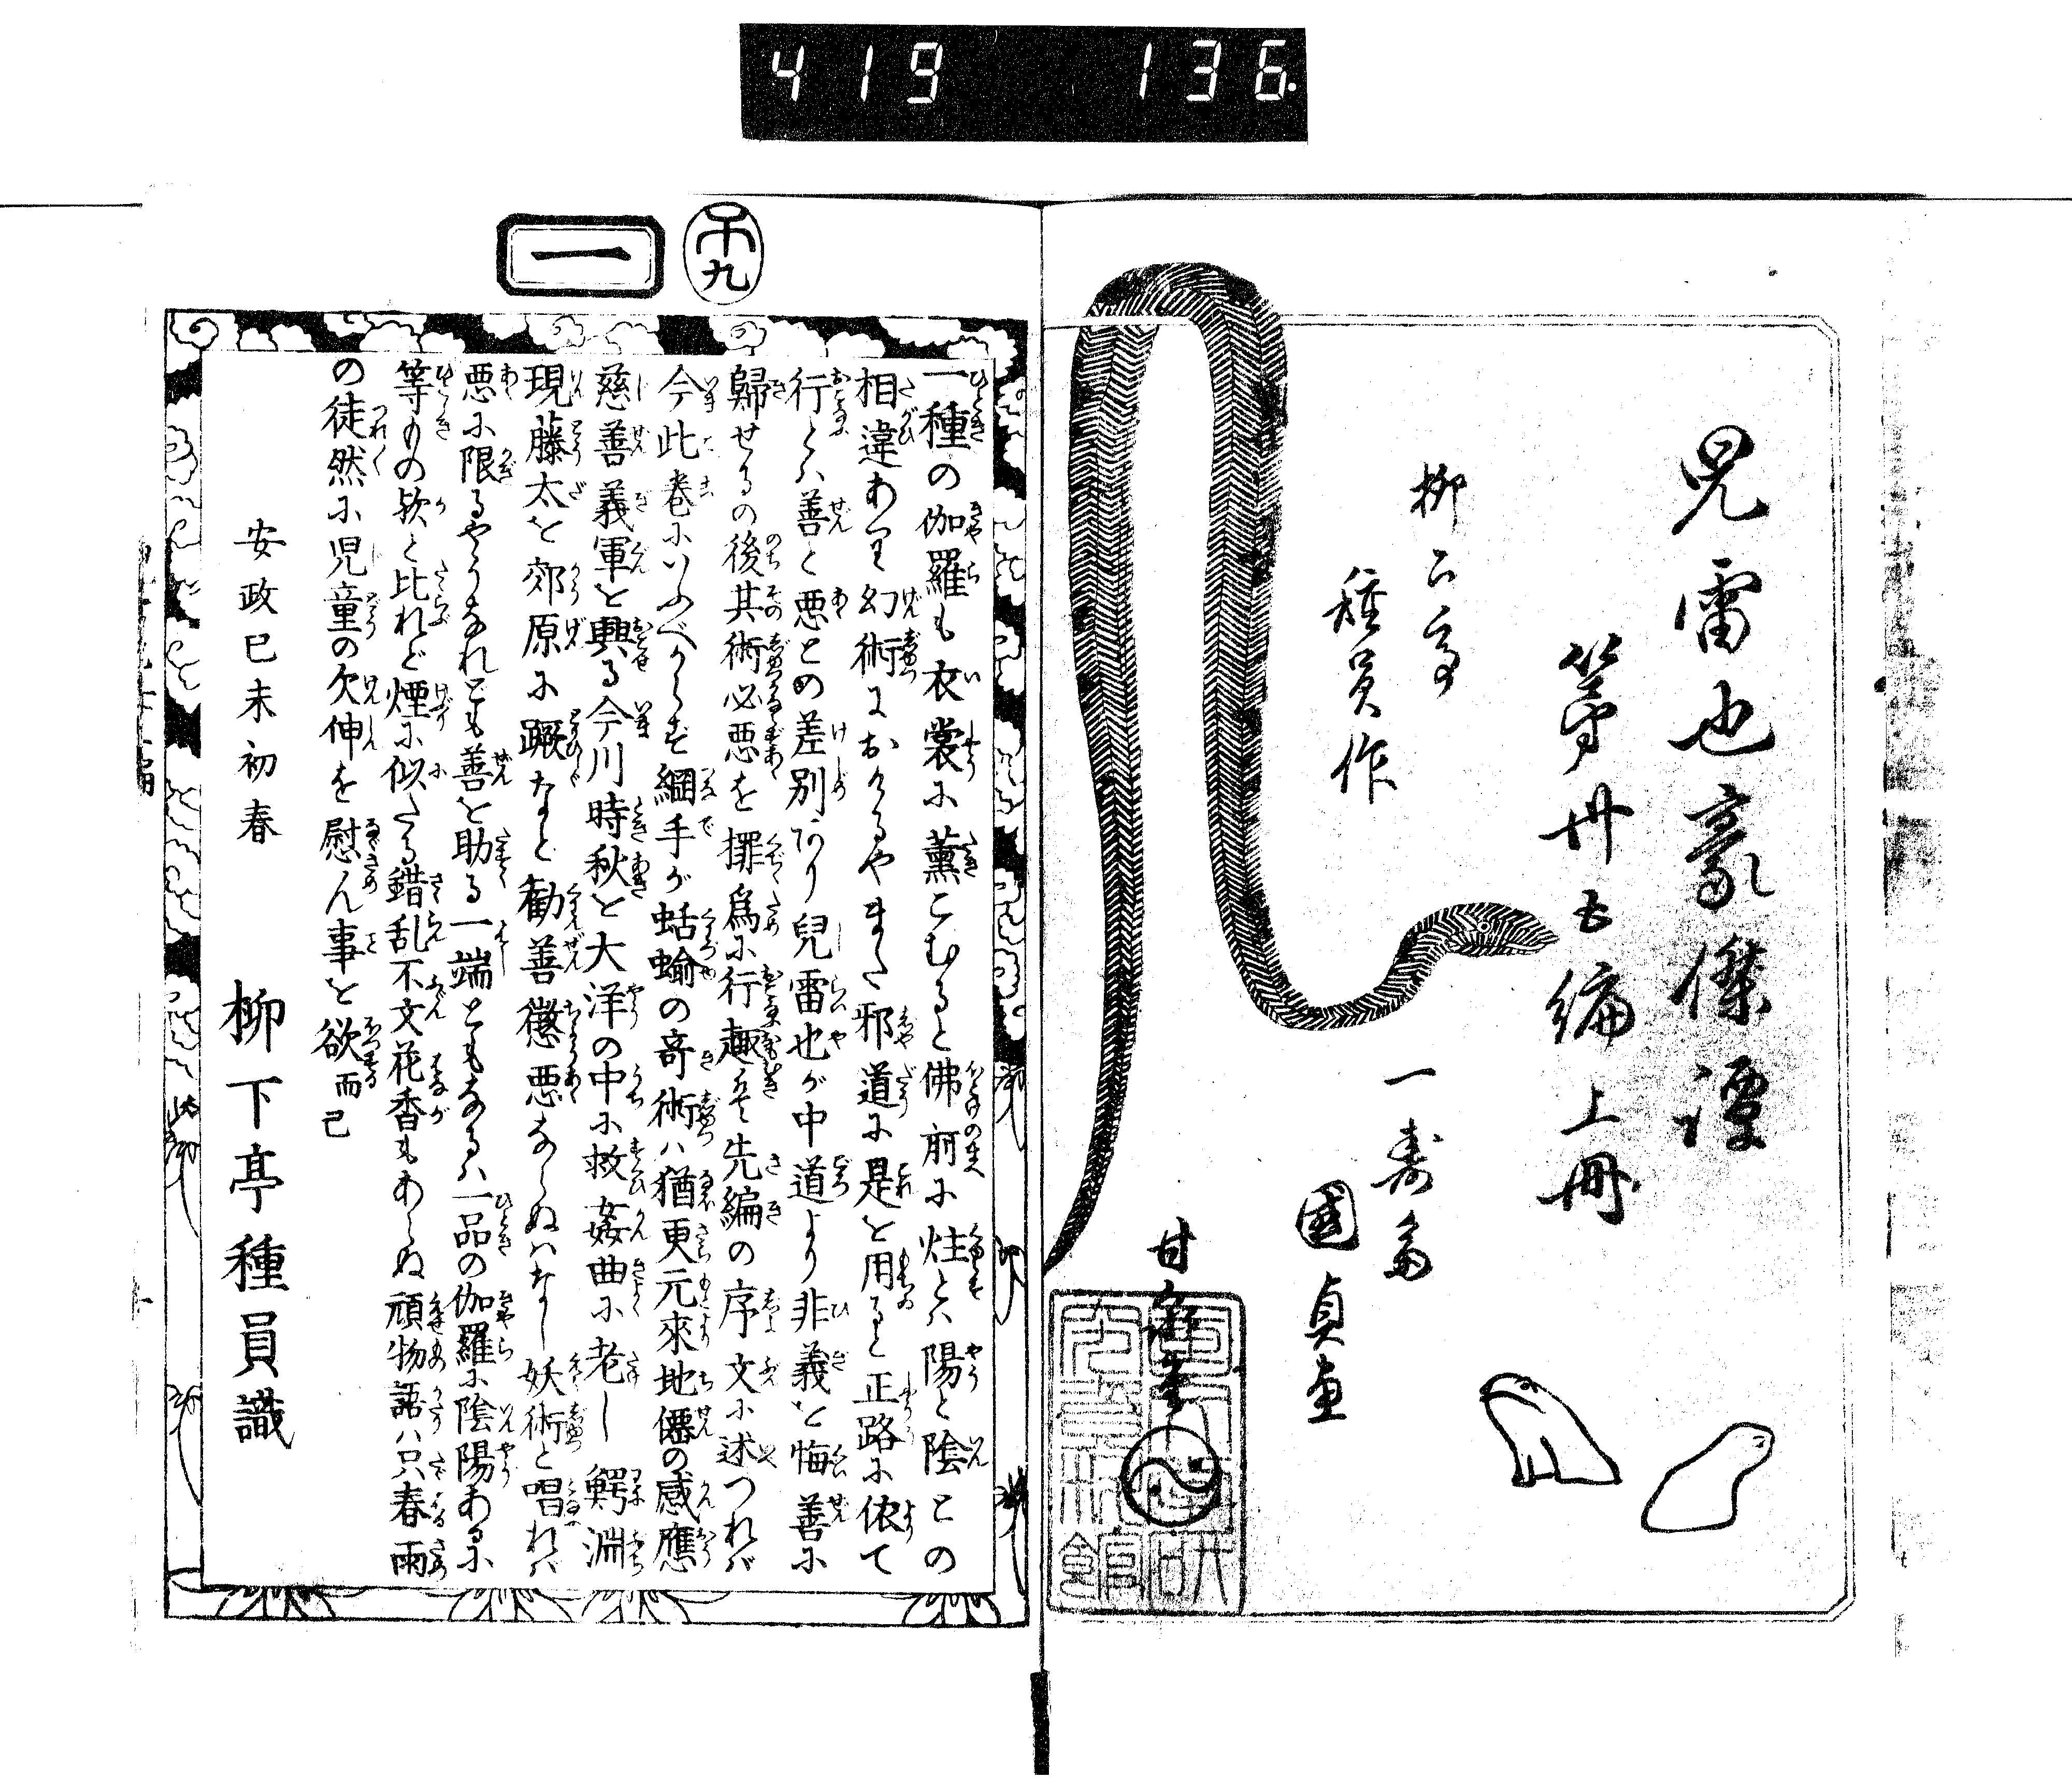 419 136
兒雷也豪傑譚
第卅五編 上冊
柳下亭
種員作
一壽齋
國貞画
甘泉堂
一
十九
一種の伽羅も衣裳に薫こむると佛前に炷とハ陽と陰との
相違あり幻術におけるやまた邪道に是を用ると正路に依て
行とハ善と悪との差別あり兒雷也が中道より非義を悔善に
歸せるの後其術必悪を擢爲に行趣を先編の序文に述つれバ
今此巻にいふべからず綱手が蛞蝓の竒術ハ猶更元來地僊の感應
慈善義軍を興る今川時秋を大洋の中に救姦曲に老し鰐淵
現藤太を郊原に蹶など勸善懲悪ならぬハなし妖術と唱れバ
悪に限るやうなれども善を助る一端ともなるハ一品の伽羅に陰陽あるに
等ものの欤と比れど煙に似たる錯乱不文花香もあらぬ頑物語ハ只春雨
の徒然に児童の欠伸を慰ん事を欲而已
安政己未初春
柳下亭種員識